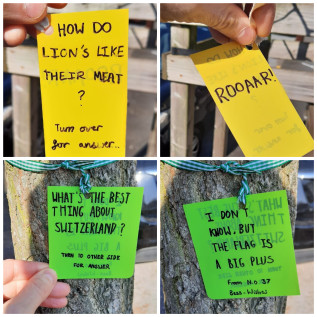 HOW DO
LION'S LIKE
THEIR MEAT
?
Turn over
for answer...
ROOAAR!
WHAT'S THE BEST
THING ABOUT
SWITZERLAND?
TURN TO OTHER SIDE
FOR ANSWER
I DON'T
KNOW, BUT
THE FLAG IS
A BIG PLUS
From N.O 37
Best-Wishes